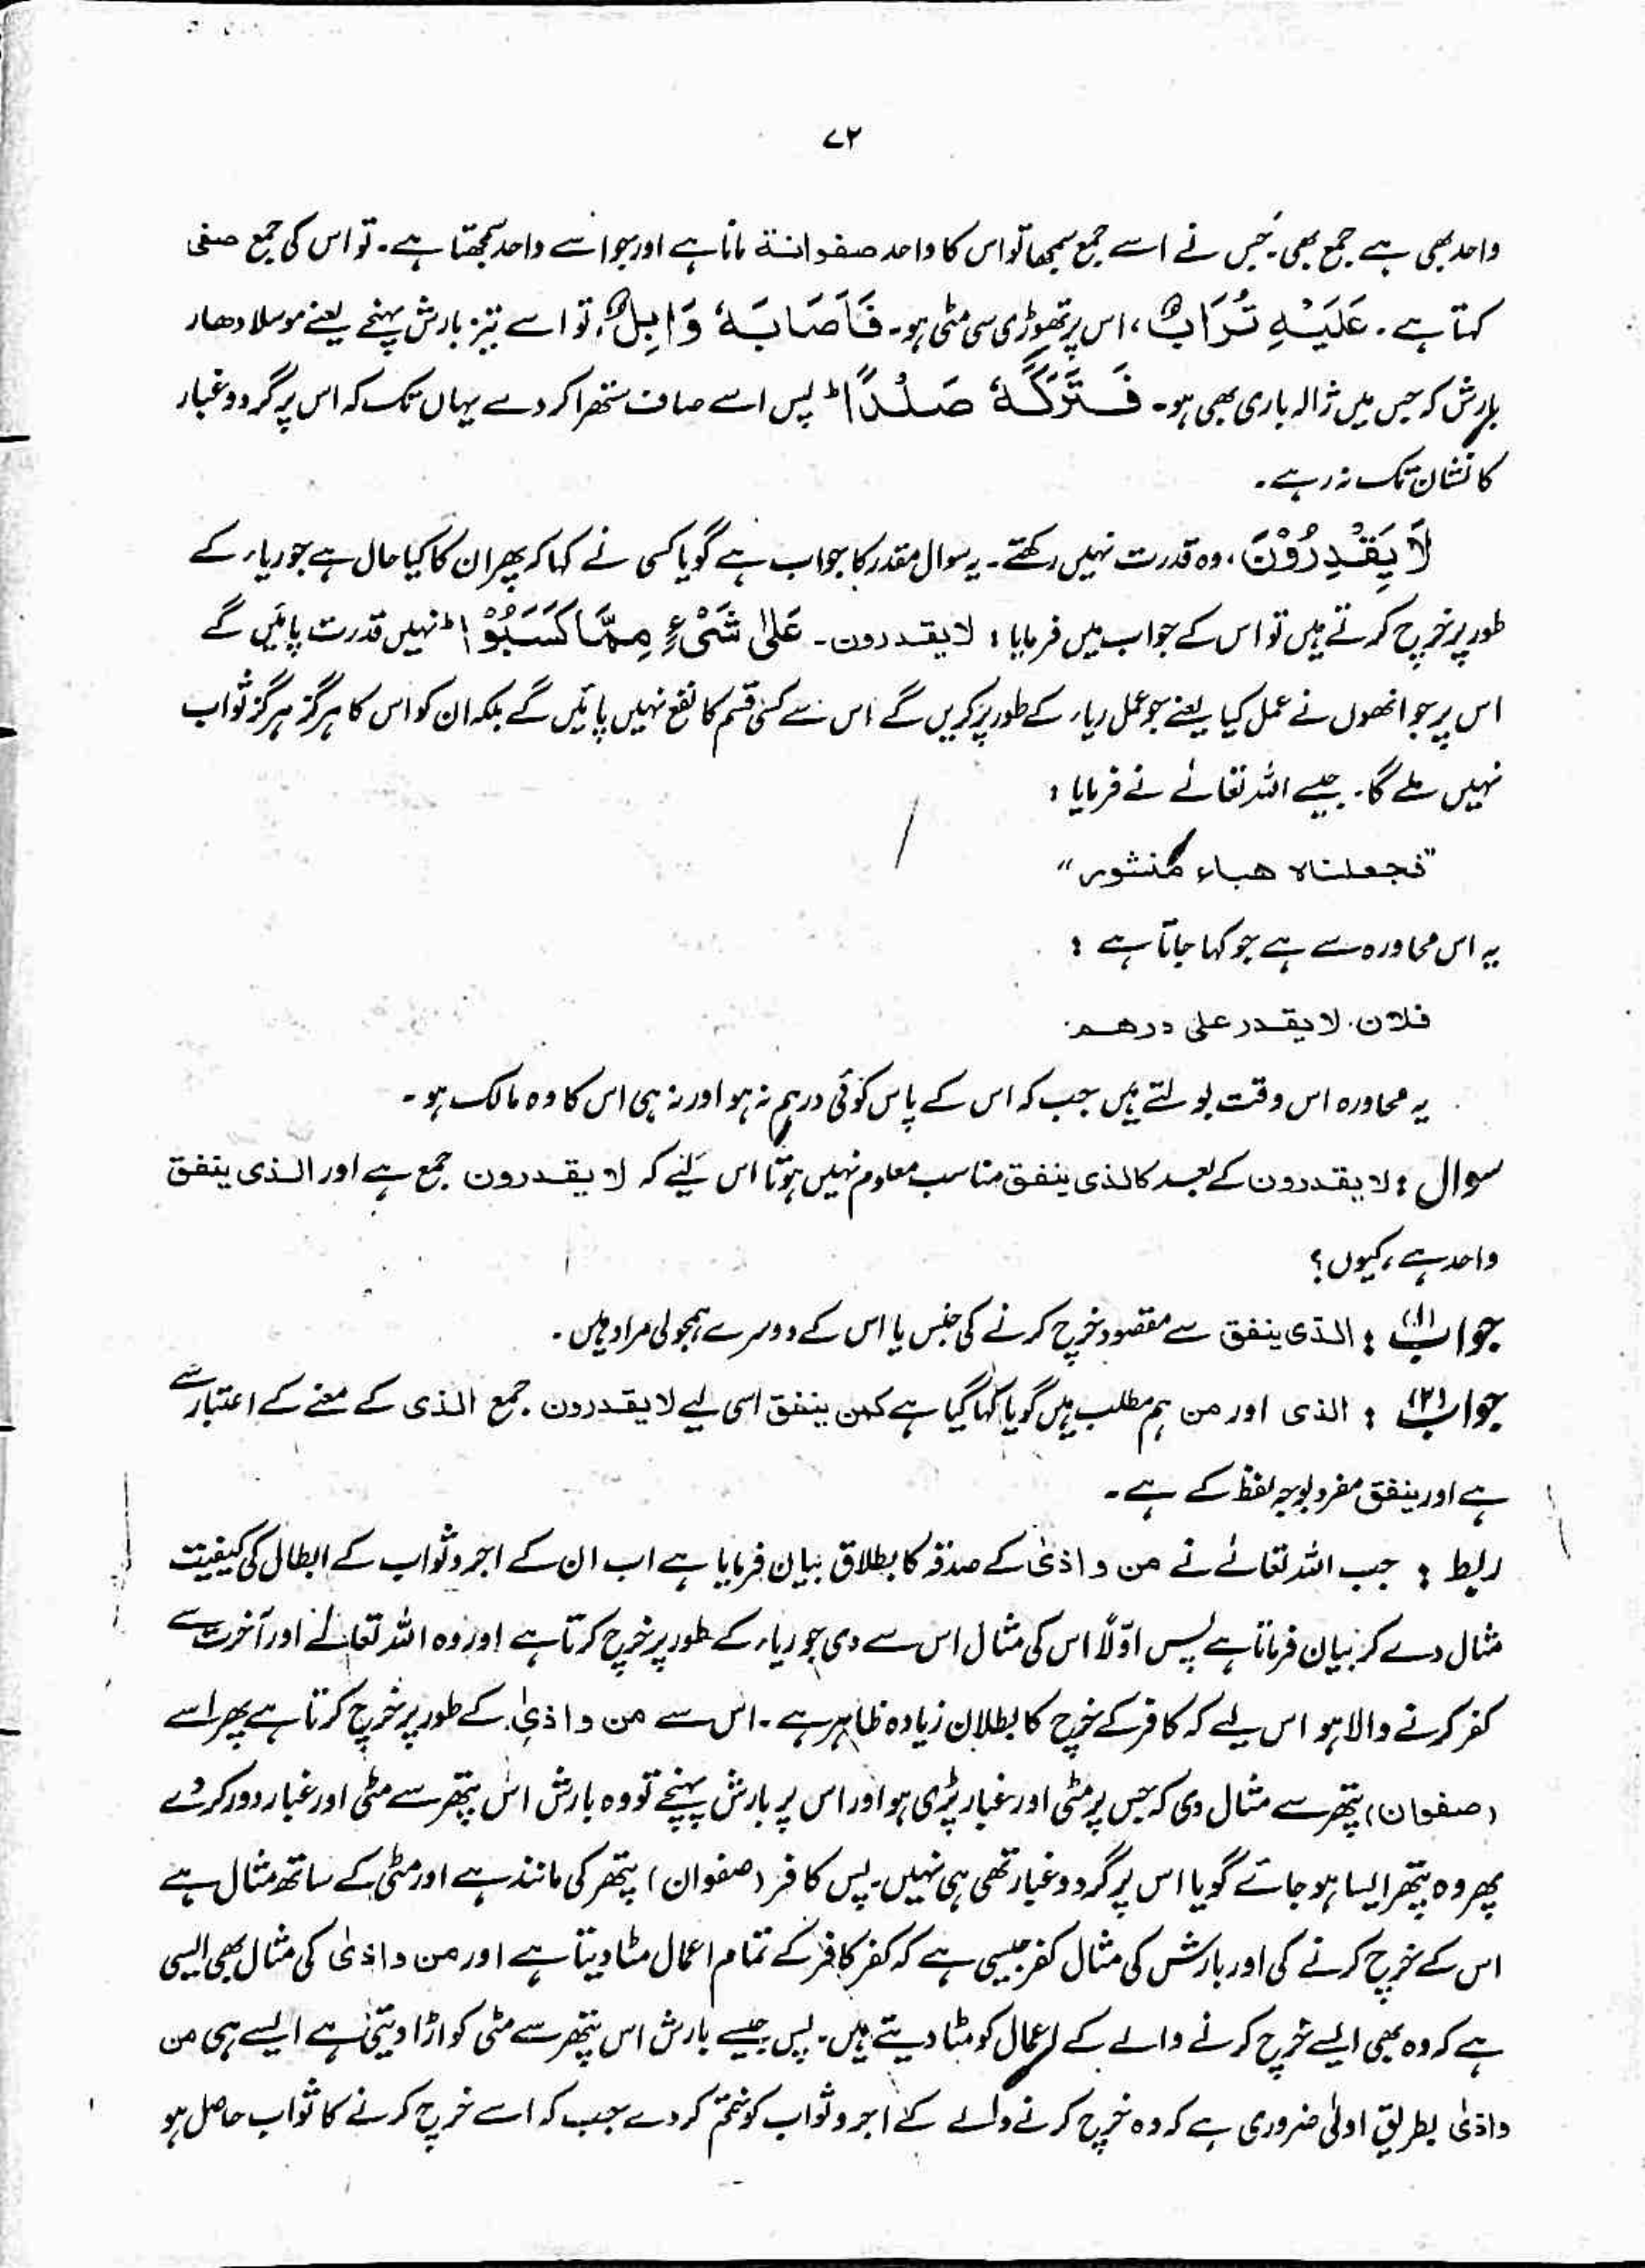 ۷۲
واحد بھی ہے جمع بھی۔ جس نے اسے جمع سمجھا تو اس کا واحد صفوانة مانا ہے اور جو اسے واحد سمجھتا ہے۔ تو اس کی جمع صفی
کہتا ہے۔ عَلَيْهِ تُرَابٌ، اس پر تھوڑی سی مٹی ہو۔ فَاَصَابَهٗ وَابِلٌ، تو اسے تیز بارش پہنچے یعنے موسلا دھار
بارش کہ جس میں ژالہ باری بھی ہو۔ فَتَرَكَهٗ صَلْدًاؕ پس اسے صاف ستھرا کر دے یہاں تک کہ اس پر گرد و غبار
کا نشان تک نہ رہے۔
لَا يَقْدِرُوْنَ، وہ قدرت نہیں رکھتے۔ یہ سوال مقدر کا جواب ہے گویا کسی نے کہا کہ پھر ان کا کیا حال ہے جو ریاء کے
طور پر خرچ کرتے ہیں تو اس کے جواب میں فرمایا : لا یقدرون۔ عَلٰى شَیْءٍ مِّمَّا كَسَبُوْاؕ نہیں قدرت پائیں گے
اس پر جو انھوں نے عمل کیا یعنے جو عمل ریاء کے طور پر کریں گے اس سے کسی قسم کا نفع نہیں پائیں گے بلکہ ان کو اس کا ہرگز ہرگز ثواب
نہیں ملے گا۔ جیسے اللہ تعالے نے فرمایا :
"فجعلناہ ھباء منثورا"
یہ اس محاورہ سے ہے جو کہا جاتا ہے :
فلان لا یقدر علی درھم۔
یہ محاورہ اس وقت بولتے ہیں جب کہ اس کے پاس کوئی درہم نہ ہو اور نہ ہی اس کا وہ مالک ہو۔
سوال : لا یقدرون کے بعد کالذی ینفق مناسب معلوم نہیں ہوتا اس لیے کہ لا یقدرون جمع ہے اور الذی ینفق
واحد ہے، کیوں؟
جواب (۱) : الذی ینفق سے مقصود خرچ کرنے کی جنس یا اس کے دوسرے ہمجولی مراد ہیں۔
جواب (۲) : الذی اور من ہم مطلب ہیں گویا کہا گیا ہے کمن ینفق اسی لیے لا یقدرون جمع الذی کے معنے کے اعتبار سے
ہے اور ینفق مفرد بوجہ لفظ کے ہے۔
ربط : جب اللہ تعالے نے من و اذیٰ کے صدقہ کا بطلاق بیان فرمایا ہے اب ان کے اجر و ثواب کے ابطال کی کیفیت
مثال دے کر بیان فرماتا ہے پس اوّلاً اس کی مثال اس سے دی جو ریاء کے طور پر خرچ کرتا ہے اور وہ اللہ تعالے اور آخرت سے
کفر کرنے والا ہو اس لیے کہ کافر کے خرچ کا بطلان زیادہ ظاہر ہے۔ اس سے من و اذیٰ کے طور پر خرچ کرتا ہے پھر اسے
(صفوان) پتھر سے مثال دی کہ جس پر مٹی اور غبار پڑی ہو اور اس پر بارش پہنچے تو وہ بارش اس پتھر سے مٹی اور غبار دور کر دے
پھر وہ پتھر ایسا ہو جائے گویا اس پر گرد و غبار تھی ہی نہیں۔ پس کافر (صفوان) پتھر کی مانند ہے اور مٹی کے ساتھ مثال ہے
اس کے خرچ کرنے کی اور بارش کی مثال کفر جیسی ہے کہ کفر کافر کے تمام اعمال مٹا دیتا ہے اور من و اذیٰ کی مثال بھی ایسی
ہے کہ وہ بھی ایسے خرچ کرنے والے کے اعمال کو مٹا دیتے ہیں۔ پس جیسے بارش اس پتھر سے مٹی کو اڑا دیتی ہے ایسے ہی من
و اذیٰ بطریق اولیٰ ضروری ہے کہ وہ خرچ کرنے والے کے اجر و ثواب کو ختم کر دے جب کہ اسے خرچ کرنے کا ثواب حاصل ہو